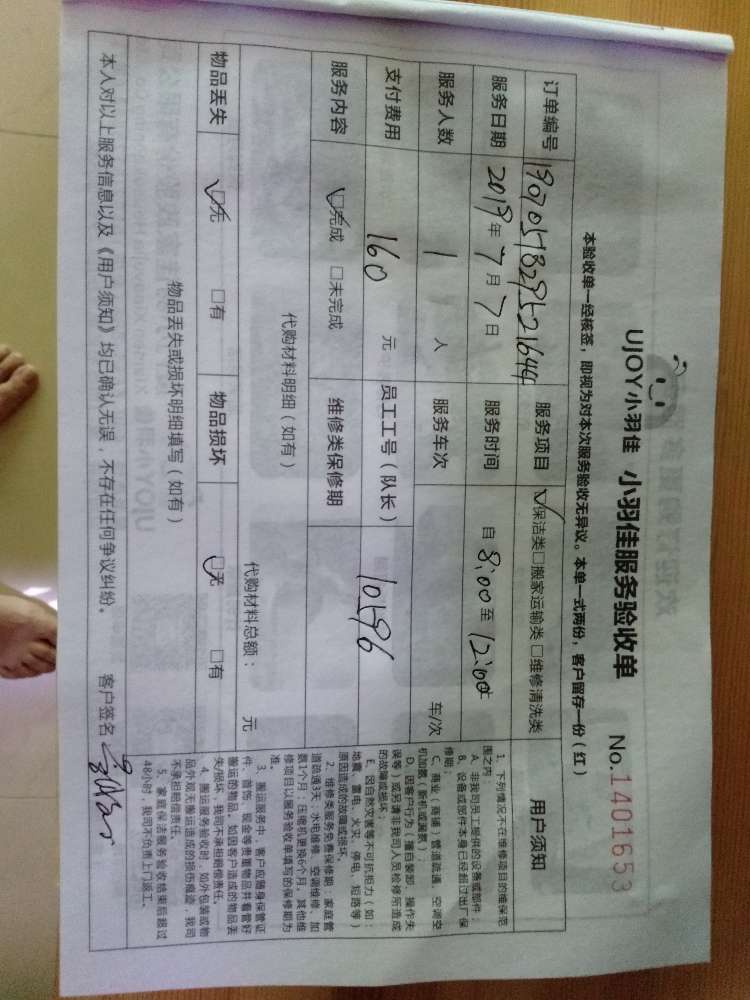 UJOY小羽佳 小羽佳服务验收单 No.1401653
本验收单一经核签，即视为对本次服务验收无异议。本单一式两份，客户留存一份（红）
订单编号 服务项目 保洁类 搬家运输类 维修清洗类 用户须知
服务日期 2019年7月7日 服务时间 自 8:00 至 12:00
服务人数 1 人 服务车次 车/次
支付费用 160 元 员工工号（队长） 10596
服务内容 完成 未完成 维修类保修期
代购材料明细（如有） 代购材料总额： 元
物品丢失 无 有 物品损坏 无 有
物品丢失或损坏明细填写（如有）
1、下列情况不在维修项目的维保范
围之内
A、非我司员工提供的设备或部件；
B、设备或部件本身已经超过出厂保
修期；
C、商业（商铺）管道疏通、空调空
机加氨（新机或漏氨）；
D、因客户行为（擅自装卸、操作失
误等）或另请非我司人员检修所造成
的故障或损坏；
E、因自然灾害等不可抗拒力（如：
地震、雷电、火灾、停电、短路等）
原因造成的故障或损坏。
2、维修类服务免费保修期：家庭管
道疏通3天、水电维修、空调维修、加
氨1个月，压缩机更换6个月，其他维
修项目以服务验收单填写的保修期为
准。
3、搬运服务中，客户应随身保管证
件、首饰、现金等贵重物品并看管好
搬运的物品。如因客户造成的物品丢
失/损坏，我司不承担赔偿责任。
4、搬运服务验收时，如外包装或物
品外观无搬运造成的损伤痕迹，我司
不承担赔偿责任。
5、家庭保洁服务验收结束后超过
48小时，我司不负责上门返工。
本人对以上服务信息以及《用户须知》均已确认无误，不存在任何争议纠纷。 客户签名